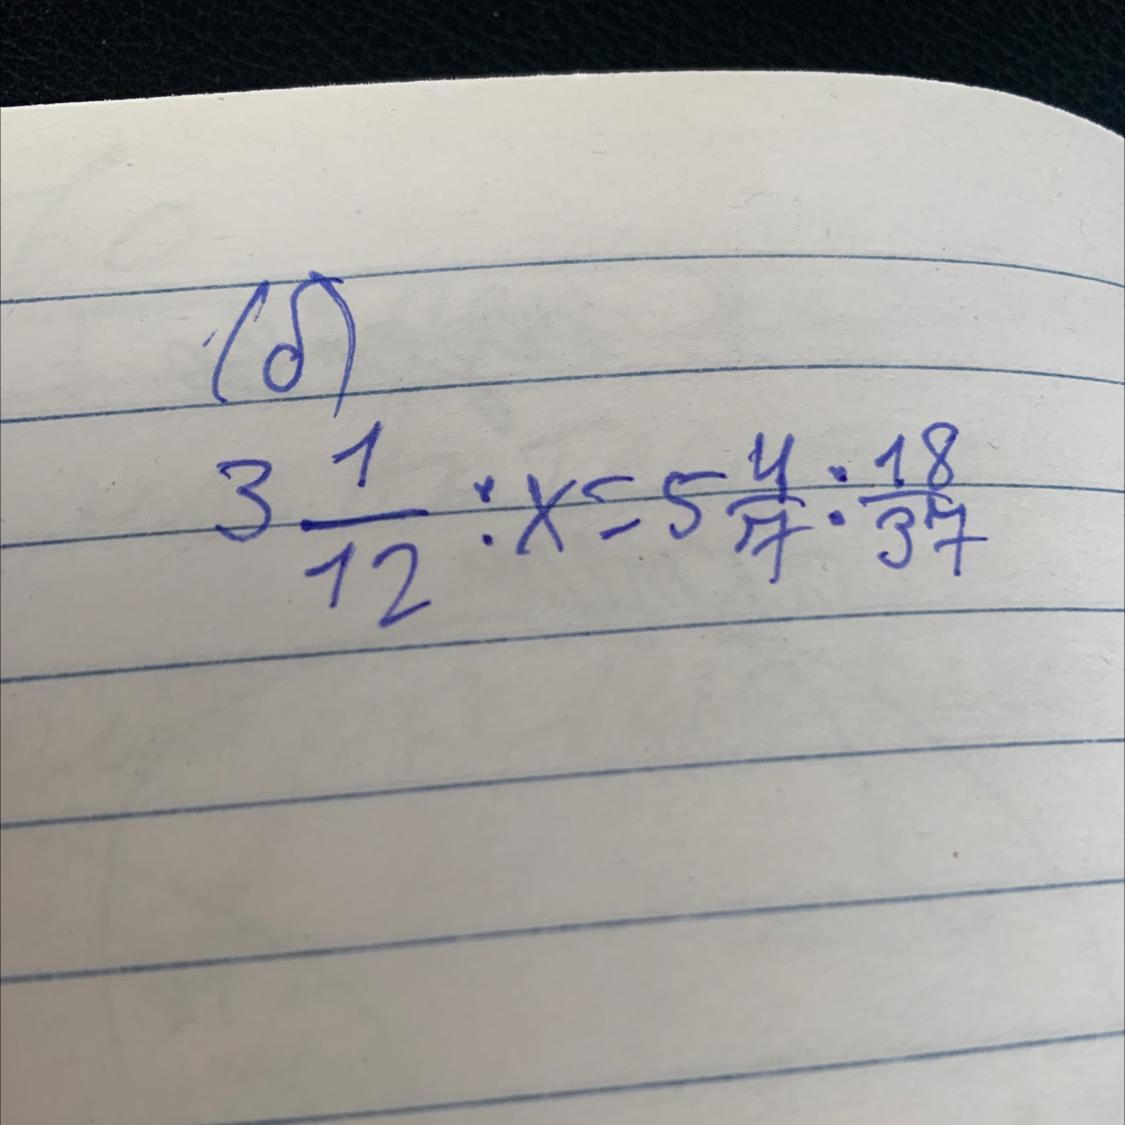 (б)
3 1/12 : x = 5 4/7 : 18/37